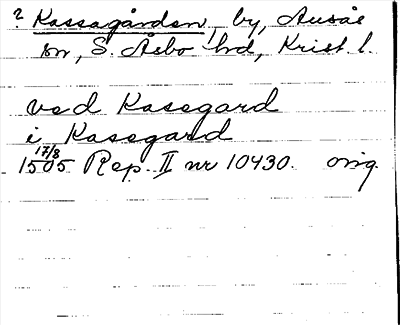 ? Kassagården, by, Ausås
sn, S. Åsbo hd, Krist. l.
ved Kasegard
i Kasegard
17/8
1505 Rep. II nr 10430. orig.